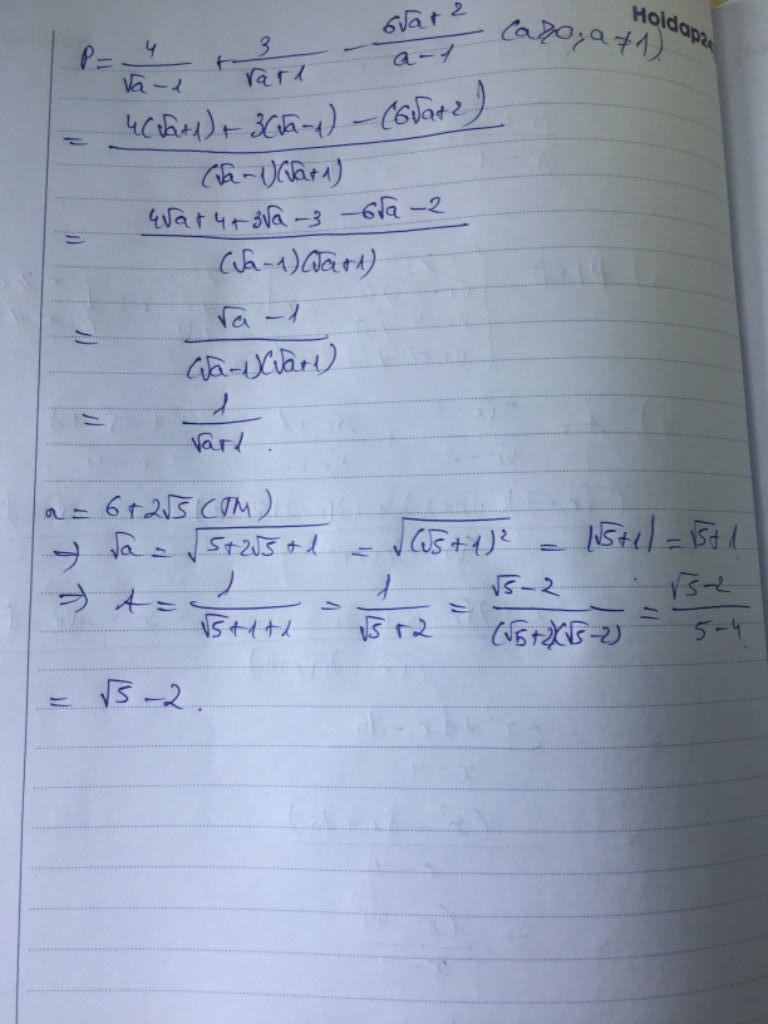 Hoidap24
P = 4/(√a-1) + 3/(√a+1) - (6√a+2)/(a-1) (a≥0; a≠1)
= (4(√a+1) + 3(√a-1) - (6√a+2))/((√a-1)(√a+1))
= (4√a+4+3√a-3-6√a-2)/((√a-1)(√a+1))
= (√a-1)/((√a-1)(√a+1))
= 1/(√a+1).
a = 6+2√5 (TM)
→ √a = √(5+2√5+1) = √((√5+1)²) = |√5+1| = √5+1
⇒ A = 1/(√5+1+1) = 1/(√5+2) = (√5-2)/((√5+2)(√5-2)) = (√5-2)/(5-4)
= √5-2.